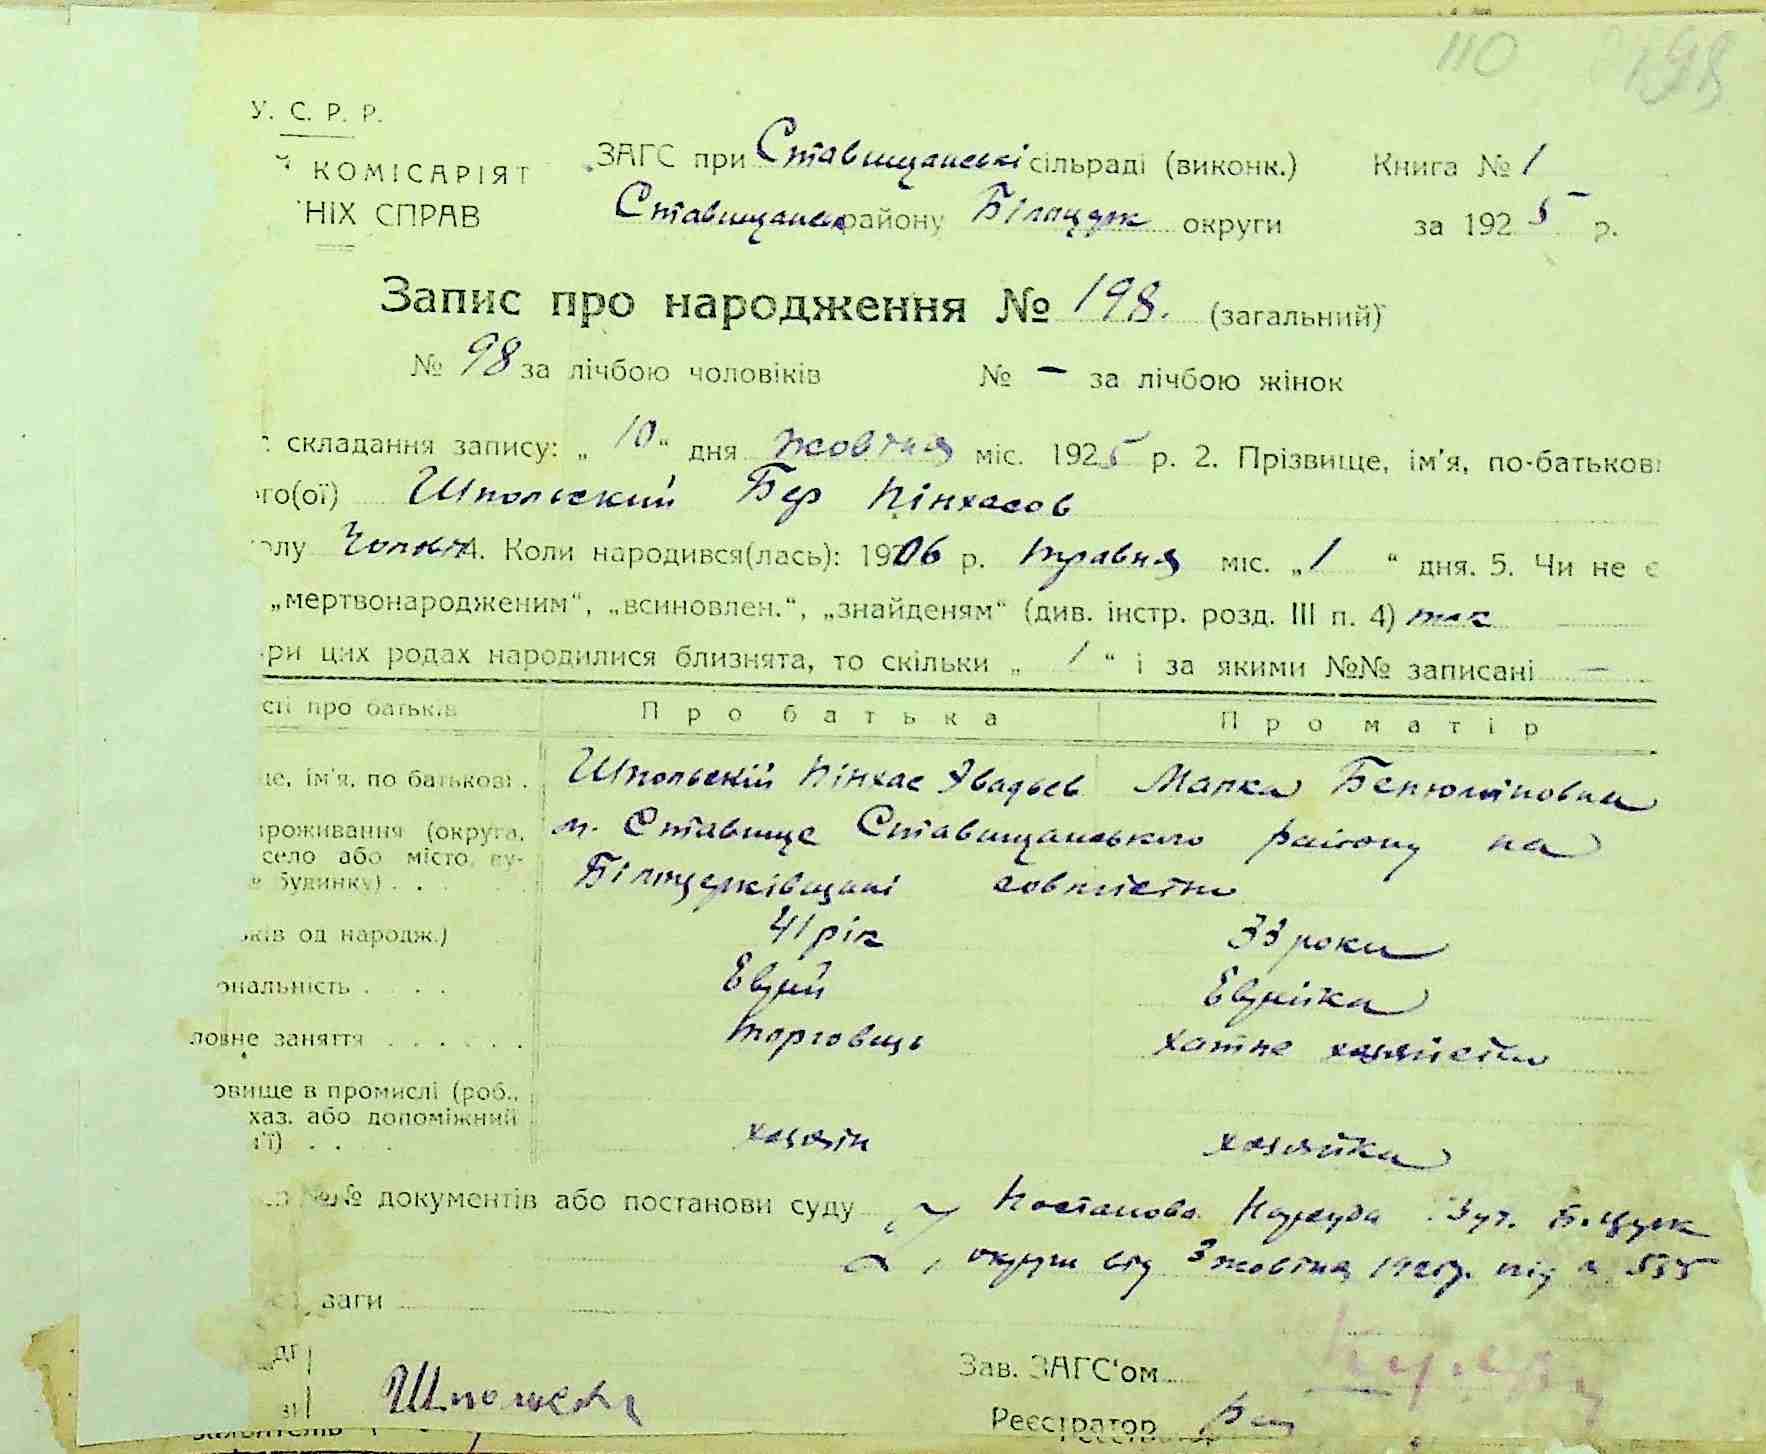 110 198
У. С. Р. Р.
Й КОМІСАРІЯТ ЗАГС при Ставищанські сільраді (виконк.) Книга № 1
НІХ СПРАВ Ставищанськ району Білоцерк округи за 1925 р.
Запис про народження № 198. (загальний)
№ 98 за лічбою чоловіків № — за лічбою жінок
складання запису: „ 10 “ дня жовтня міс. 1925 р. 2. Прізвище, ім'я, по-батькові
го(ої) Шпольский Бер Пінхасов
олу Чолов. 4. Коли народився(лась): 1906 р. травня міс. „ 1 “ дня. 5. Чи не є
„мертвонародженим“, „всиновлен.“, „знайденям“ (див. інстр. розд. III п. 4) так
ри цих родах народилися близнята, то скільки „ 1 “ і за якими №№ записані —
сті про батьків Про батька Про матір
це, ім'я, по батькові . Шпольский Пінхас Явадьев Малка Бенюминовна
проживання (округа, м. Ставище Ставищанського району на
село або місто, ву-
будинку) . . Білоцерківщині совмістно
ків од народж.) 41 рік 33 роки
ональність . . . . Еврий Еврийка
ловне заняття . . . . . . торговець хатне хазяйство
овище в промислі (роб.,
хаз. або допоміжний
ії) . . . . хазяін хазяйка
№№ документів або постанови суду Постанова Нарсуда Б.Церк
округи від 3 жовтня 1925р. під № 535
ваги
Зав. ЗАГС'ом
Реєстратор